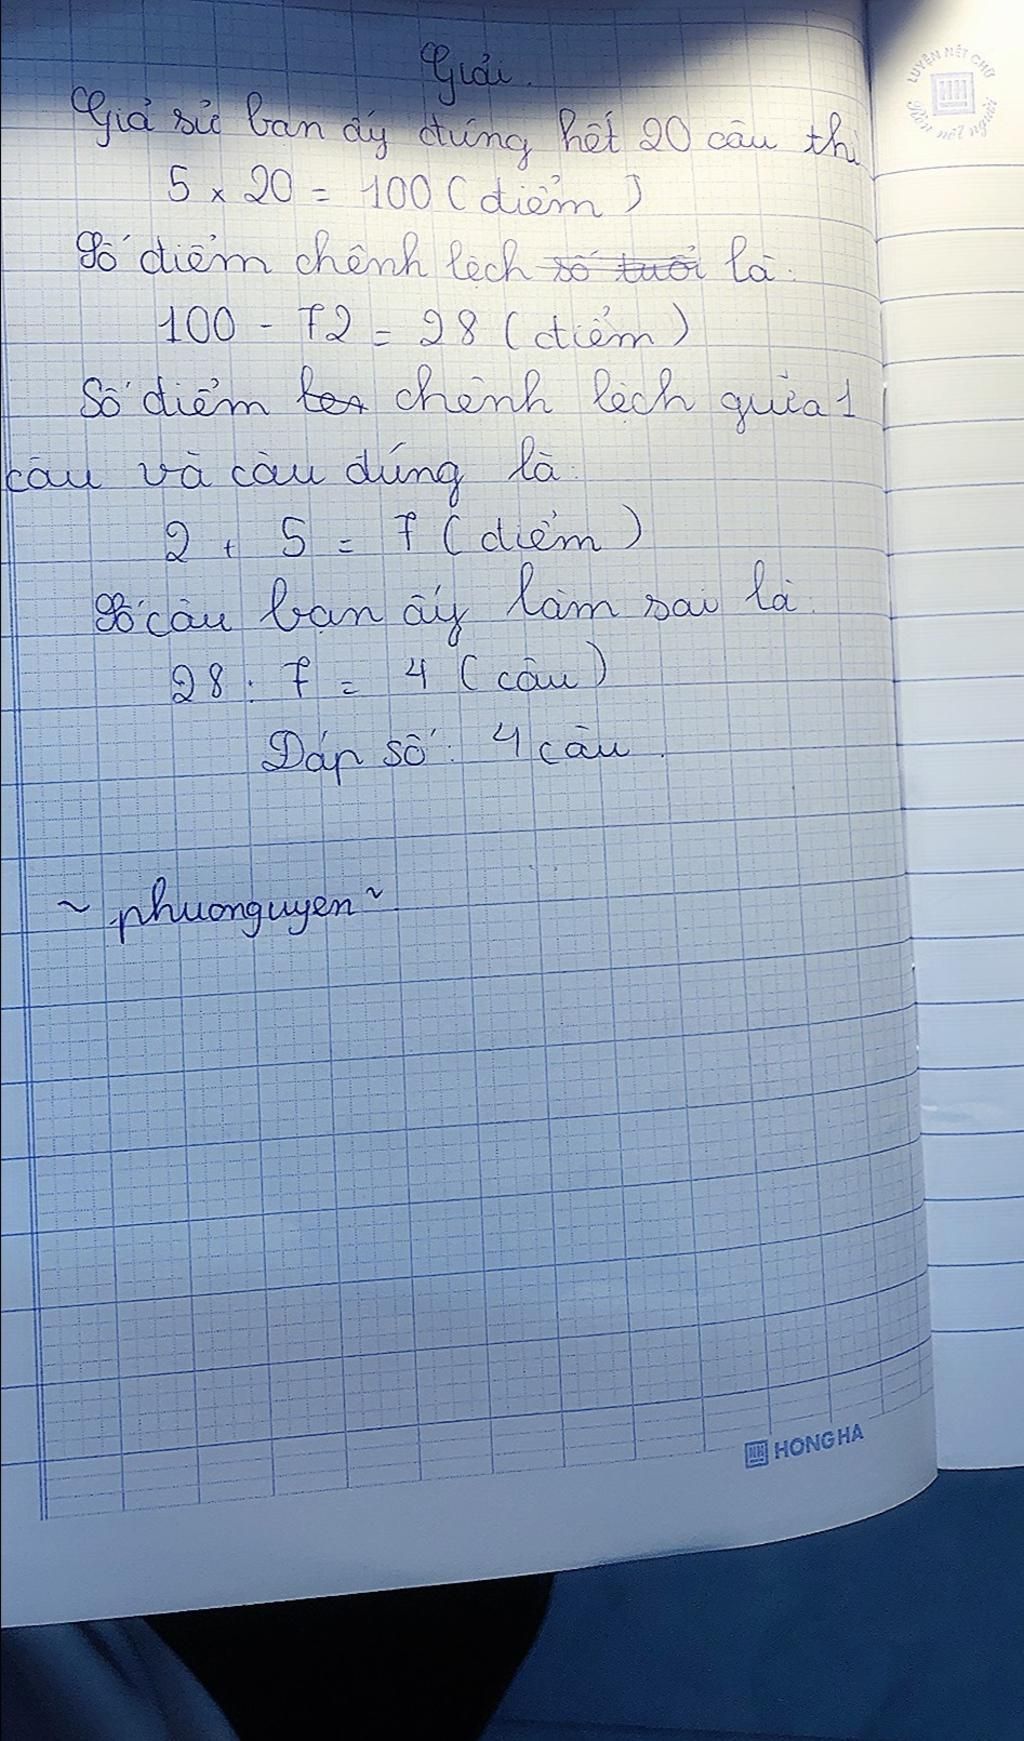 Giải.
Giả sử bạn ấy đúng hết 20 câu thì
5 x 20 = 100 (điểm)
Số điểm chênh lệch số tuổi là:
100 - 72 = 28 (điểm)
Số điểm chênh lệch giữa 1
câu và câu dúng là:
2 + 5 = 7 (điểm)
Số câu bạn ấy làm sai là:
28 : 7 = 4 (câu)
Dáp số: 4 câu.
~ phuonguyen ~
HONG HA
LUYỆN NÉT CHỮ
Rèn nết người